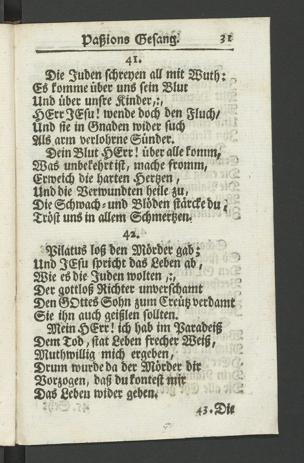 Paßions Gesang. 31
41.
Die Juden schreyen all mit Wuth:
Es komme über uns sein Blut
Und über unsre Kinder,:,
HErr JEsu! wende doch den Fluch/
Und sie in Gnaden wider such
Als arm verlohrne Sünder.
Dein Blut HErr! über alle komm,
Was unbekehrt ist, mache fromm,
Erweich die harten Hertzen,
Und die Verwundten heile zu,
Die Schwach- und Blöden stärcke du;
Tröst uns in allem Schmertzen.
42.
Pilatus loß den Mörder gab;
Und JEsu spricht das Leben ab,
Wie es die Juden wolten ,:,
Der gottloß Richter unverschamt
Den GOttes Sohn zum Creütz verdamt
Sie ihn auch geißlen sollten.
Mein HErr! ich hab im Paradeiß
Dem Tod, stat Leben frecher Weiß,
Muthwillig mich ergeben,
Drum wurde da der Mörder dir
Vorzogen, daß du kontest mir
Das Leben wider geben.
43. Die